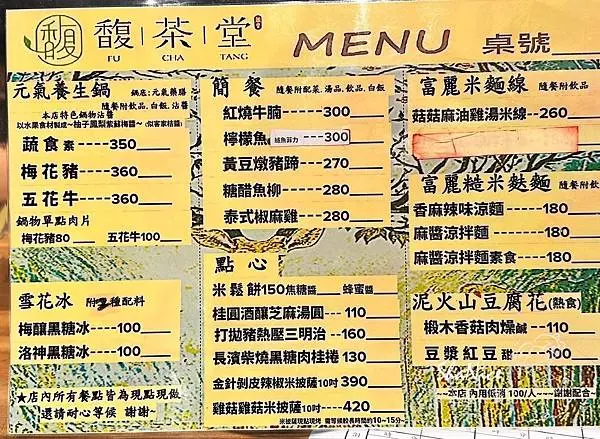 馥茶堂
FU CHA TANG
MENU 桌號
元氣養生鍋 鍋底:元氣藥膳
隨餐附飲品.白飯.沾醬
本店特色鍋物沾醬
以水果食材製成~柚子鳳梨紫蘇梅醬~(似客家桔醬)
蔬食素----350
梅花豬----360
五花牛----360
鍋物單點肉片
梅花豬80 五花牛100
雪花冰 附2種配料
梅釀黑糖冰---100
洛神黑糖冰---100
★店內所有餐點皆為現點現做
還請耐心等候 謝謝~
簡餐 隨餐附配菜.湯品.飲品.白飯
紅燒牛腩----300
檸檬魚 鯰魚菲力 ---300
黃豆燉豬蹄---270
糖醋魚柳----280
泰式椒麻雞---280
點心
米鬆餅150焦糖醬 蜂蜜醬
桂圓酒釀芝麻湯圓---110
打拋豬熱壓三明治 --160
長濱柴燒黑糖肉桂捲-130
金針剝皮辣椒米披薩10吋390
雞菇雞菇米披薩10吋--420
米披薩現點現烤 需等候較長時間約10~15分
富麗米麵線 隨餐附飲品
菇菇麻油雞湯米線--260
富麗糙米麩麵 隨餐附飲
香麻辣味涼麵 -----180
麻醬涼拌麵 ------180
麻醬涼拌麵素食----180
泥火山豆腐花(熱食)
椴木香菇肉燥鹹--110
豆漿紅豆 甜---100
~~本店 內用低消 100/人~~~謝謝配合~